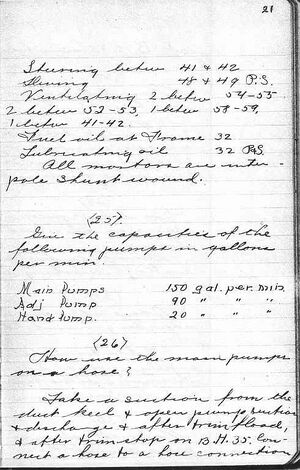 21
Steering betw 41 & 42
48 & 49 P.S.
Ventilating 2 betw 54-55
2 betw 52-53, 1 betw 58-59,
1 betw 41-42.
Fuel oil at Frame 32
Lubricating oil 32 P&S
All motors are inter-
pole shunt wound.
(25)
Give the capacities of the
following pumps in gallons
per min.
Main Pumps 150 gal. per. min.
Adj Pump 90 " " "
Hand Pump. 20 " " "
(26)
How use the main pumps
on a hose?
Take a suction from the
duct keel & open pump suction
& discharge & after trim flood,
& after trim stop on B.H. 35. Con-
nect a hose to a hose connection